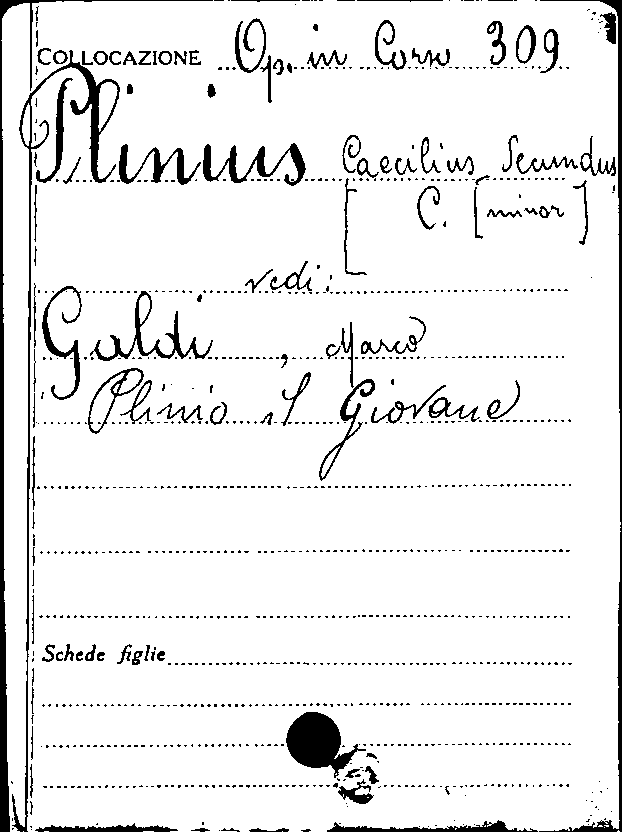 COLLOCAZIONE Op. in Corso 309
Plinius Caecilius Secundus
[ C. [minor]
vedi:
Galdi, Marco
Plinio il Giovane
Schede figlie